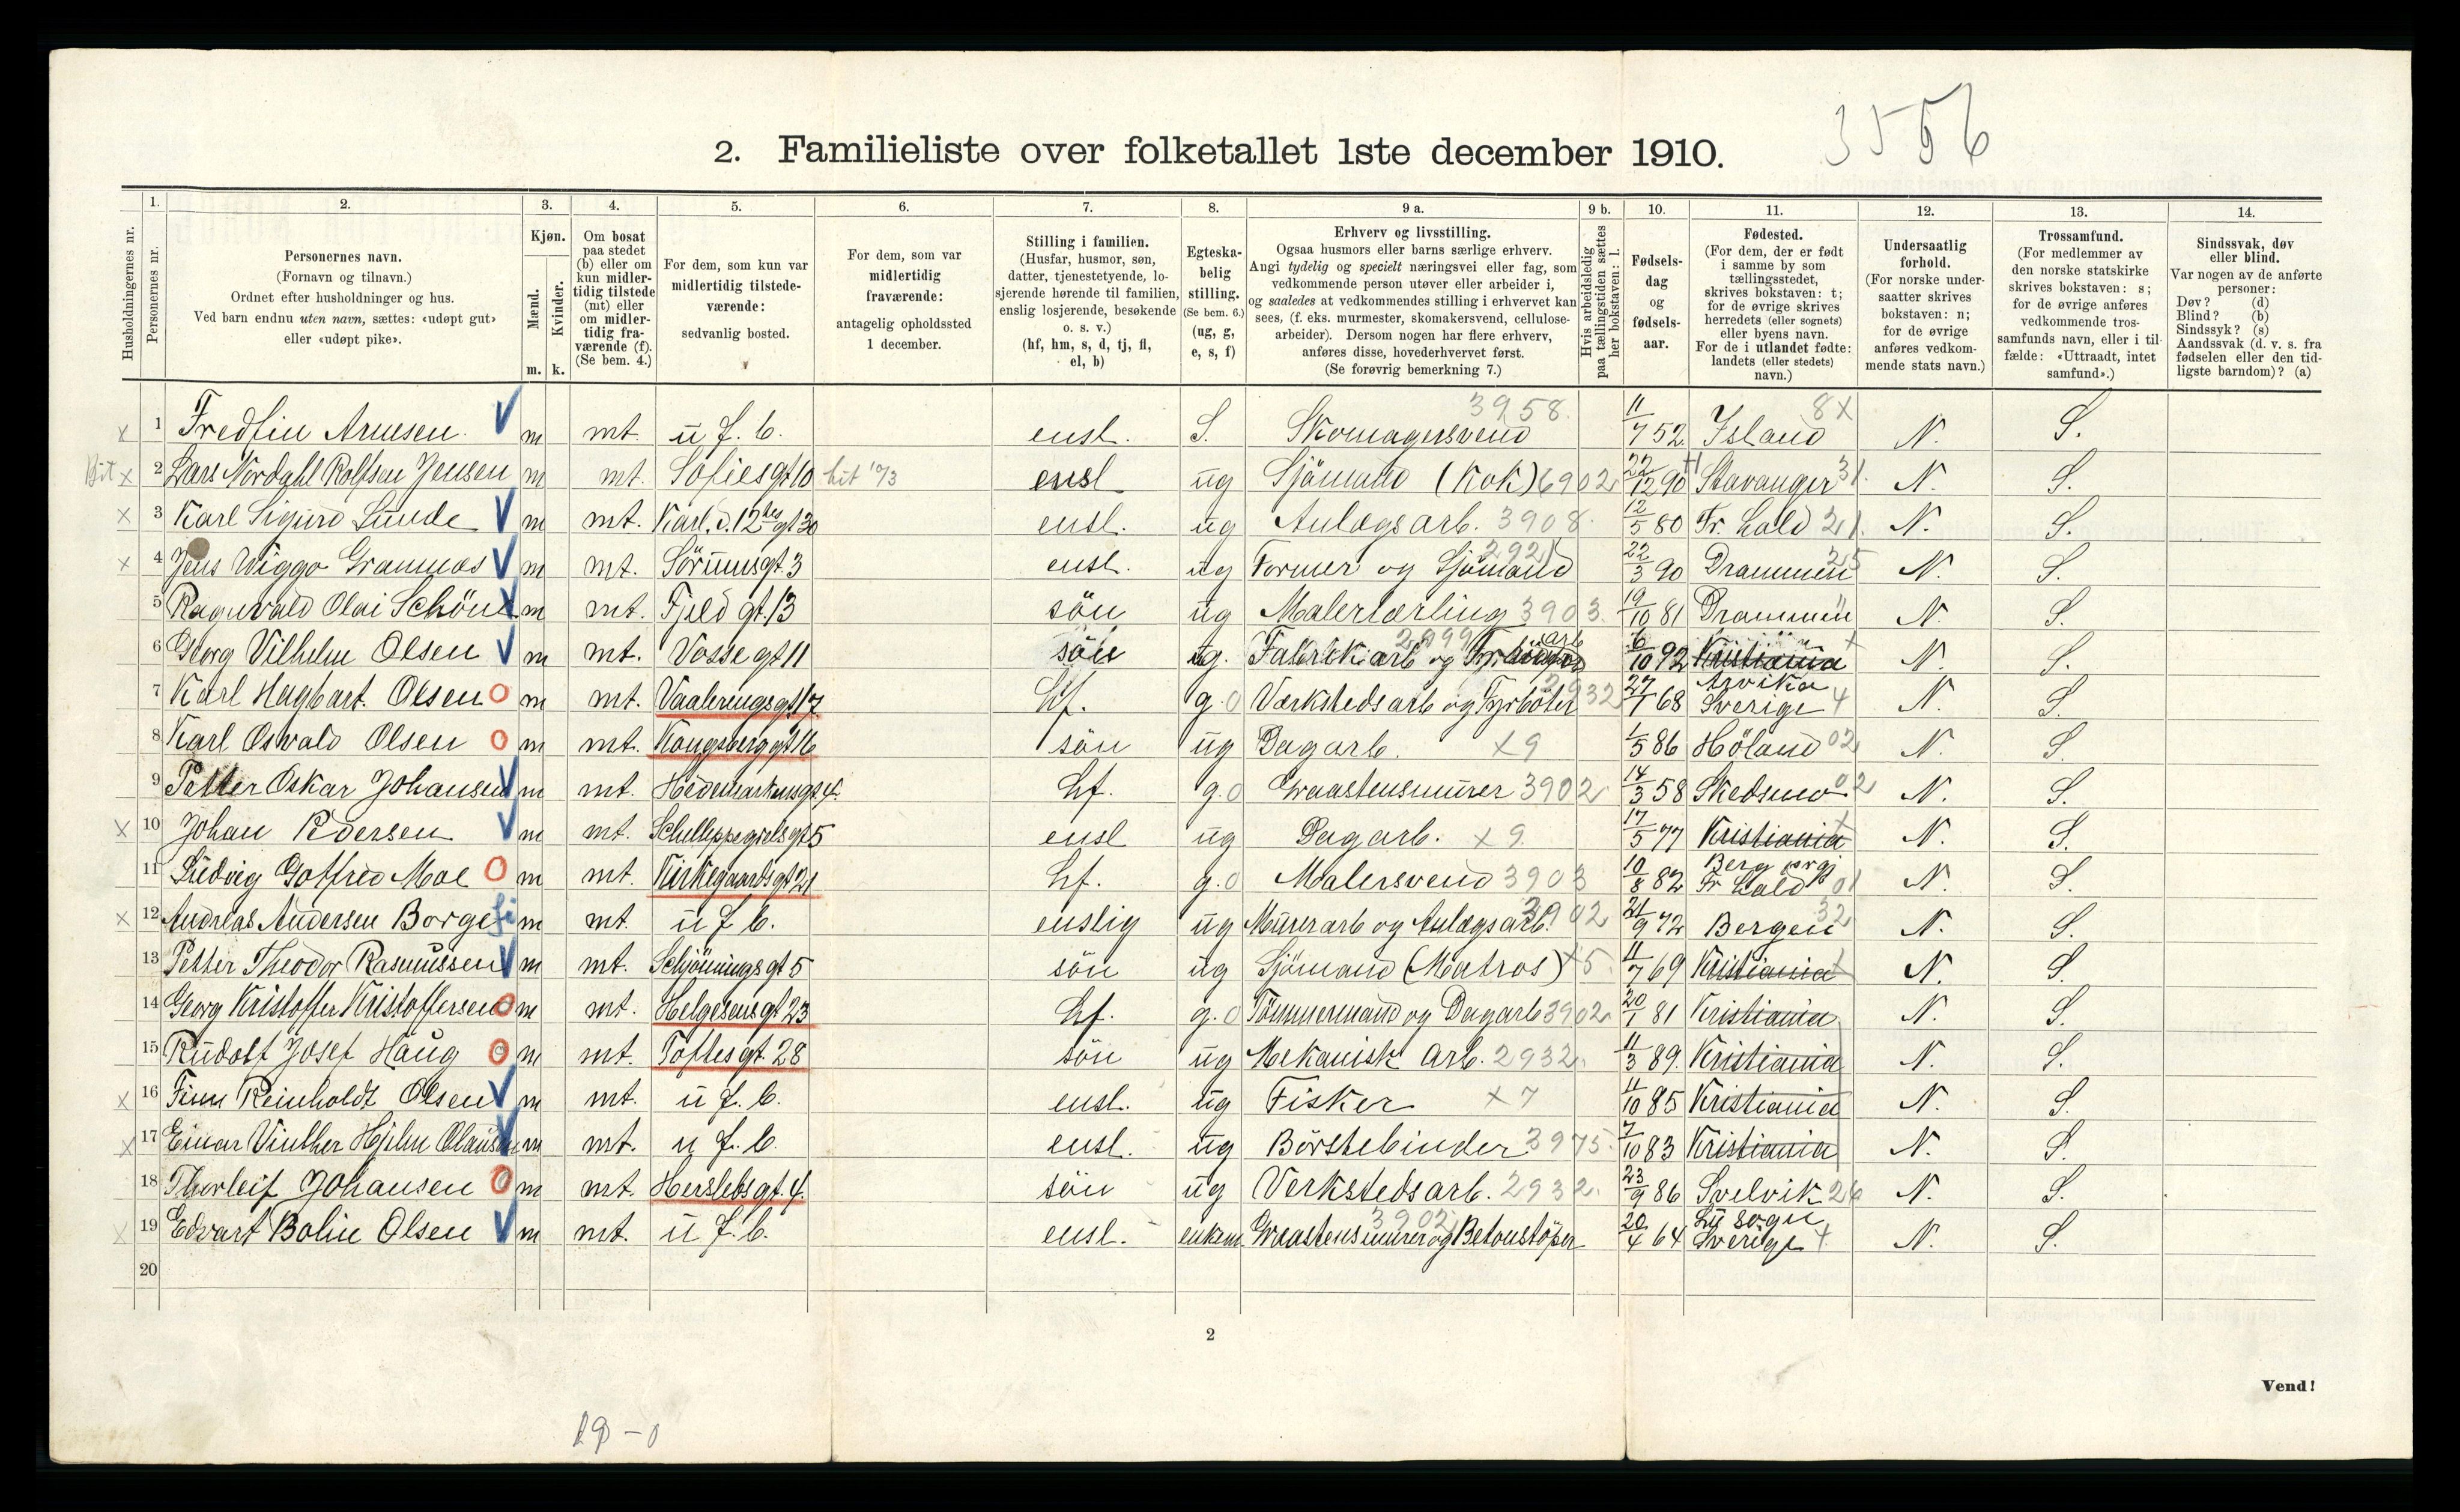 3556
2. Familieliste over folketallet 1ste december 1910.
Husholdningernes nr.
1. Personernes nr.
2. Personernes navn.
(Fornavn og tilnavn.)
Ordnet efter husholdninger og hus.
Ved barn endnu uten navn, sættes: «udøpt gut»
eller «udøpt pike».
3. Kjøn.
Mænd. m.
Kvinder. k.
4. Om bosat
paa stedet
(b) eller om
kun midler-
tidig tilstede
(mt) eller
om midler-
tidig fra-
værende (f).
(Se bem. 4.)
5. For dem, som kun var
midlertidig tilstede-
værende:
sedvanlig bosted.
6. For dem, som var
midlertidig
fraværende:
antagelig opholdssted
1 december.
7. Stilling i familien.
(Husfar, husmor, søn,
datter, tjenestetyende, lo-
sjerende hørende til familien,
enslig losjerende, besøkende
o. s. v.)
(hf, hm, s, d, tj, fl,
el, b)
8. Egteska-
belig
stilling.
(Se bem. 6.)
(ug, g,
e, s, f)
9 a. Erhverv og livsstilling.
Ogsaa husmors eller barns særlige erhverv.
Angi tydelig og specielt næringsvei eller fag, som
vedkommende person utøver eller arbeider i,
og saaledes at vedkommendes stilling i erhvervet kan
sees, (f. eks. murmester, skomakersvend, cellulose-
arbeider). Dersom nogen har flere erhverv,
anføres disse, hovederhvervet først.
(Se forøvrig bemerkning 7.)
9 b. Hvis arbeidsledig
paa tællingstiden sættes
her bokstaven: l.
10. Fødsels-
dag
og
fødsels-
aar.
11. Fødested.
(For dem, der er født
i samme by som
tællingsstedet,
skrives bokstaven: t;
for de øvrige skrives
herredets (eller sognets)
eller byens navn.
For de i utlandet fødte:
landets (eller stedets)
navn.)
12. Undersaatlig
forhold.
(For norske under-
saatter skrives
bokstaven: n;
for de øvrige
anføres vedkom-
mende stats navn.)
13. Trossamfund.
(For medlemmer av
den norske statskirke
skrives bokstaven: s;
for de øvrige anføres
vedkommende tros-
samfunds navn, eller i til-
fælde: «Uttraadt, intet
samfund».)
14. Sindssvak, døv
eller blind.
Var nogen av de anførte
personer:
Døv? (d)
Blind? (b)
Sindssyk? (s)
Aandssvak (d. v. s. fra
fødselen eller den tid-
ligste barndom)? (a)
x 1 Fredfin Arnesen. V m mt. u f. b. ensl. S. Skomagersvend 3958. 11/7 52 Island 8x N. S.
x 2 Lars Nordahl Rolfsen Jensen m mt. Sofiesgt 10 ensl ug Sjömand (Kok) 6902 22/12 90 Stavanger 31. N. S.
x 3 Karl Sigurd Lunde V m mt. Karl d. 12tes gt 30 ensl. ug Anlægsarb. 3908. 12/5 80 Fr. hald 21. N. S.
x 4 Jens Wiggo Gramnæs V m mt. Sörumsgt. 3 ensl. ug Former og Sjömand 2921 22/3 90 Drammen 25 N. S.
5 Ragnvald Olai Schöne V m mt. Fjeld gt. 13 sön ug Malerlærling 3903. 19/10 81 Drammen N. S.
6 Georg Vilhelm Olsen V m mt. Vosse gt 11 sön ug. Fabrikarb og 6/10 92 Kristiania N. S.
7 Karl Hagbart. Olsen O m mt. Vaalerengsgt 17. hf. g. 0 Værkstedsarb og Fyrböter 2932 27/7 68 Arvika Sverige 4 N. S.
8 Karl Osvald Olsen O m mt. Kongsberg gt 16 sön ug Dagarb. x9 1/5 86 Höland 02 N. S.
9 Petter Oskar Johansen V m mt. Hedemarkensgt. 4. hf. g. 0 Graastensmurer 3902 14/3 58 Skedsmo 02 N. S.
x 10 Johan Pedersen V m mt. Schleppegrelsgt 5 ensl ug Dagarb. x9. 17/5 77 Kristiania N. S.
11 Ludvig Gotfred Moe O m mt. Kirkegaardsgt 21 hf. g. 0 Malersvend 3903 10/8 82 Berg prgj Fr hald 01 N. S.
x 12 Andreas Andersen Borge m mt. u f b. enslig ug Murerarb og Anlægsarb. 3902 21/9 72 Bergen 32 N. S.
13 Petter Theodor Rasmussen V m mt. Schjönings gt 5 sön ug Sjömand (Matros) x5. 11/7 69 Kristiania N. S.
14 Georg Kristoffer Kristoffersen O m mt. Helgesens gt 23 hf. g. 0 Tömmermand og Dagarb 3902. 20/1 81 Kristiania N. S.
15 Rudolf Josef Haug O m mt. Toftes gt. 28 sön ug Mekanisk Arb. 2932. 11/3 89. Kristiania N. S.
x 16 Finn Reinholdt Olsen V m mt. u f. b. ensl. ug Fisker x7 11/10 85 Kristiania N. S.
x 17 Einar Vinther Hjelm Olaussen V m mt. u f. b. ensl. ug Börstebinder 3975. 7/10 83 Kristiania N. S.
18 Thorleif Johansen O m mt. Herslebs gt. 4. sön ug Verkstedsarb. 2932. 23/9 86 Svelvik 26 N. S.
x 19 Edvart Bolin Olsen V m mt. u f. b. ensl. enkem. Graastensmurer og Betonstöper 3902 20/4 64 Sverige 4. N. S.
20
2
Vend!
19 – 0